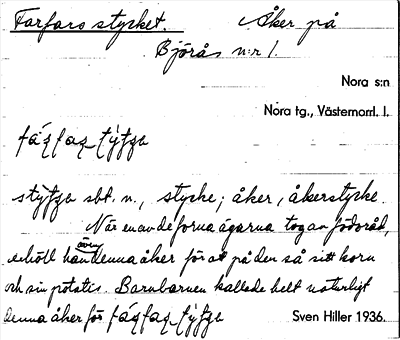 Farfars stycket. Åker på
Björås n:r 1.
Nora s:n
Nora tg., Västernorrl. l.
stycke; åker, åkerstycke.
När en av de forna ägarna tog av födoråd,
även
erhöll han denna åker för att på den så sitt korn
och sin potatis. Barnbarnen kallade helt naturligt
denna åker för
Sven Hiller 1936.